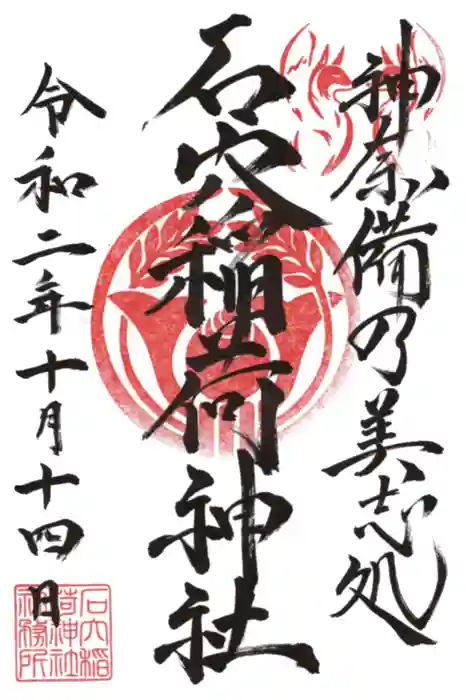 神奈備乃美志処
石穴稲荷神社
令和二年十月十四日
石穴稲
荷神社
社務所